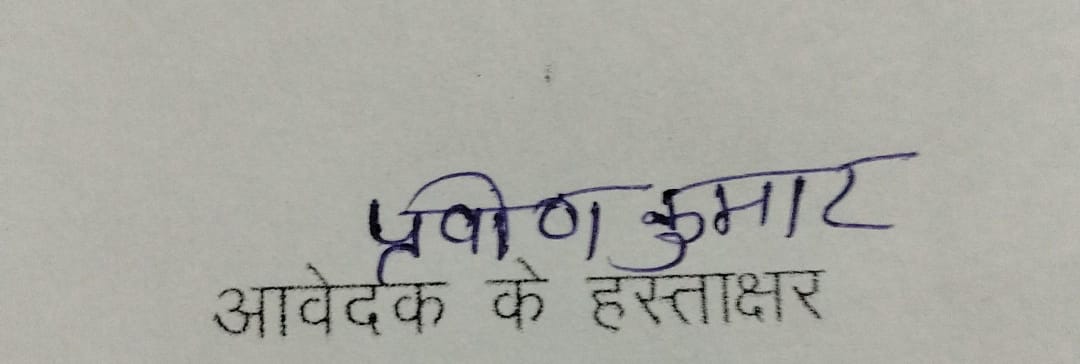 प्रवीण कुमार
आवेदक के हस्ताक्षर